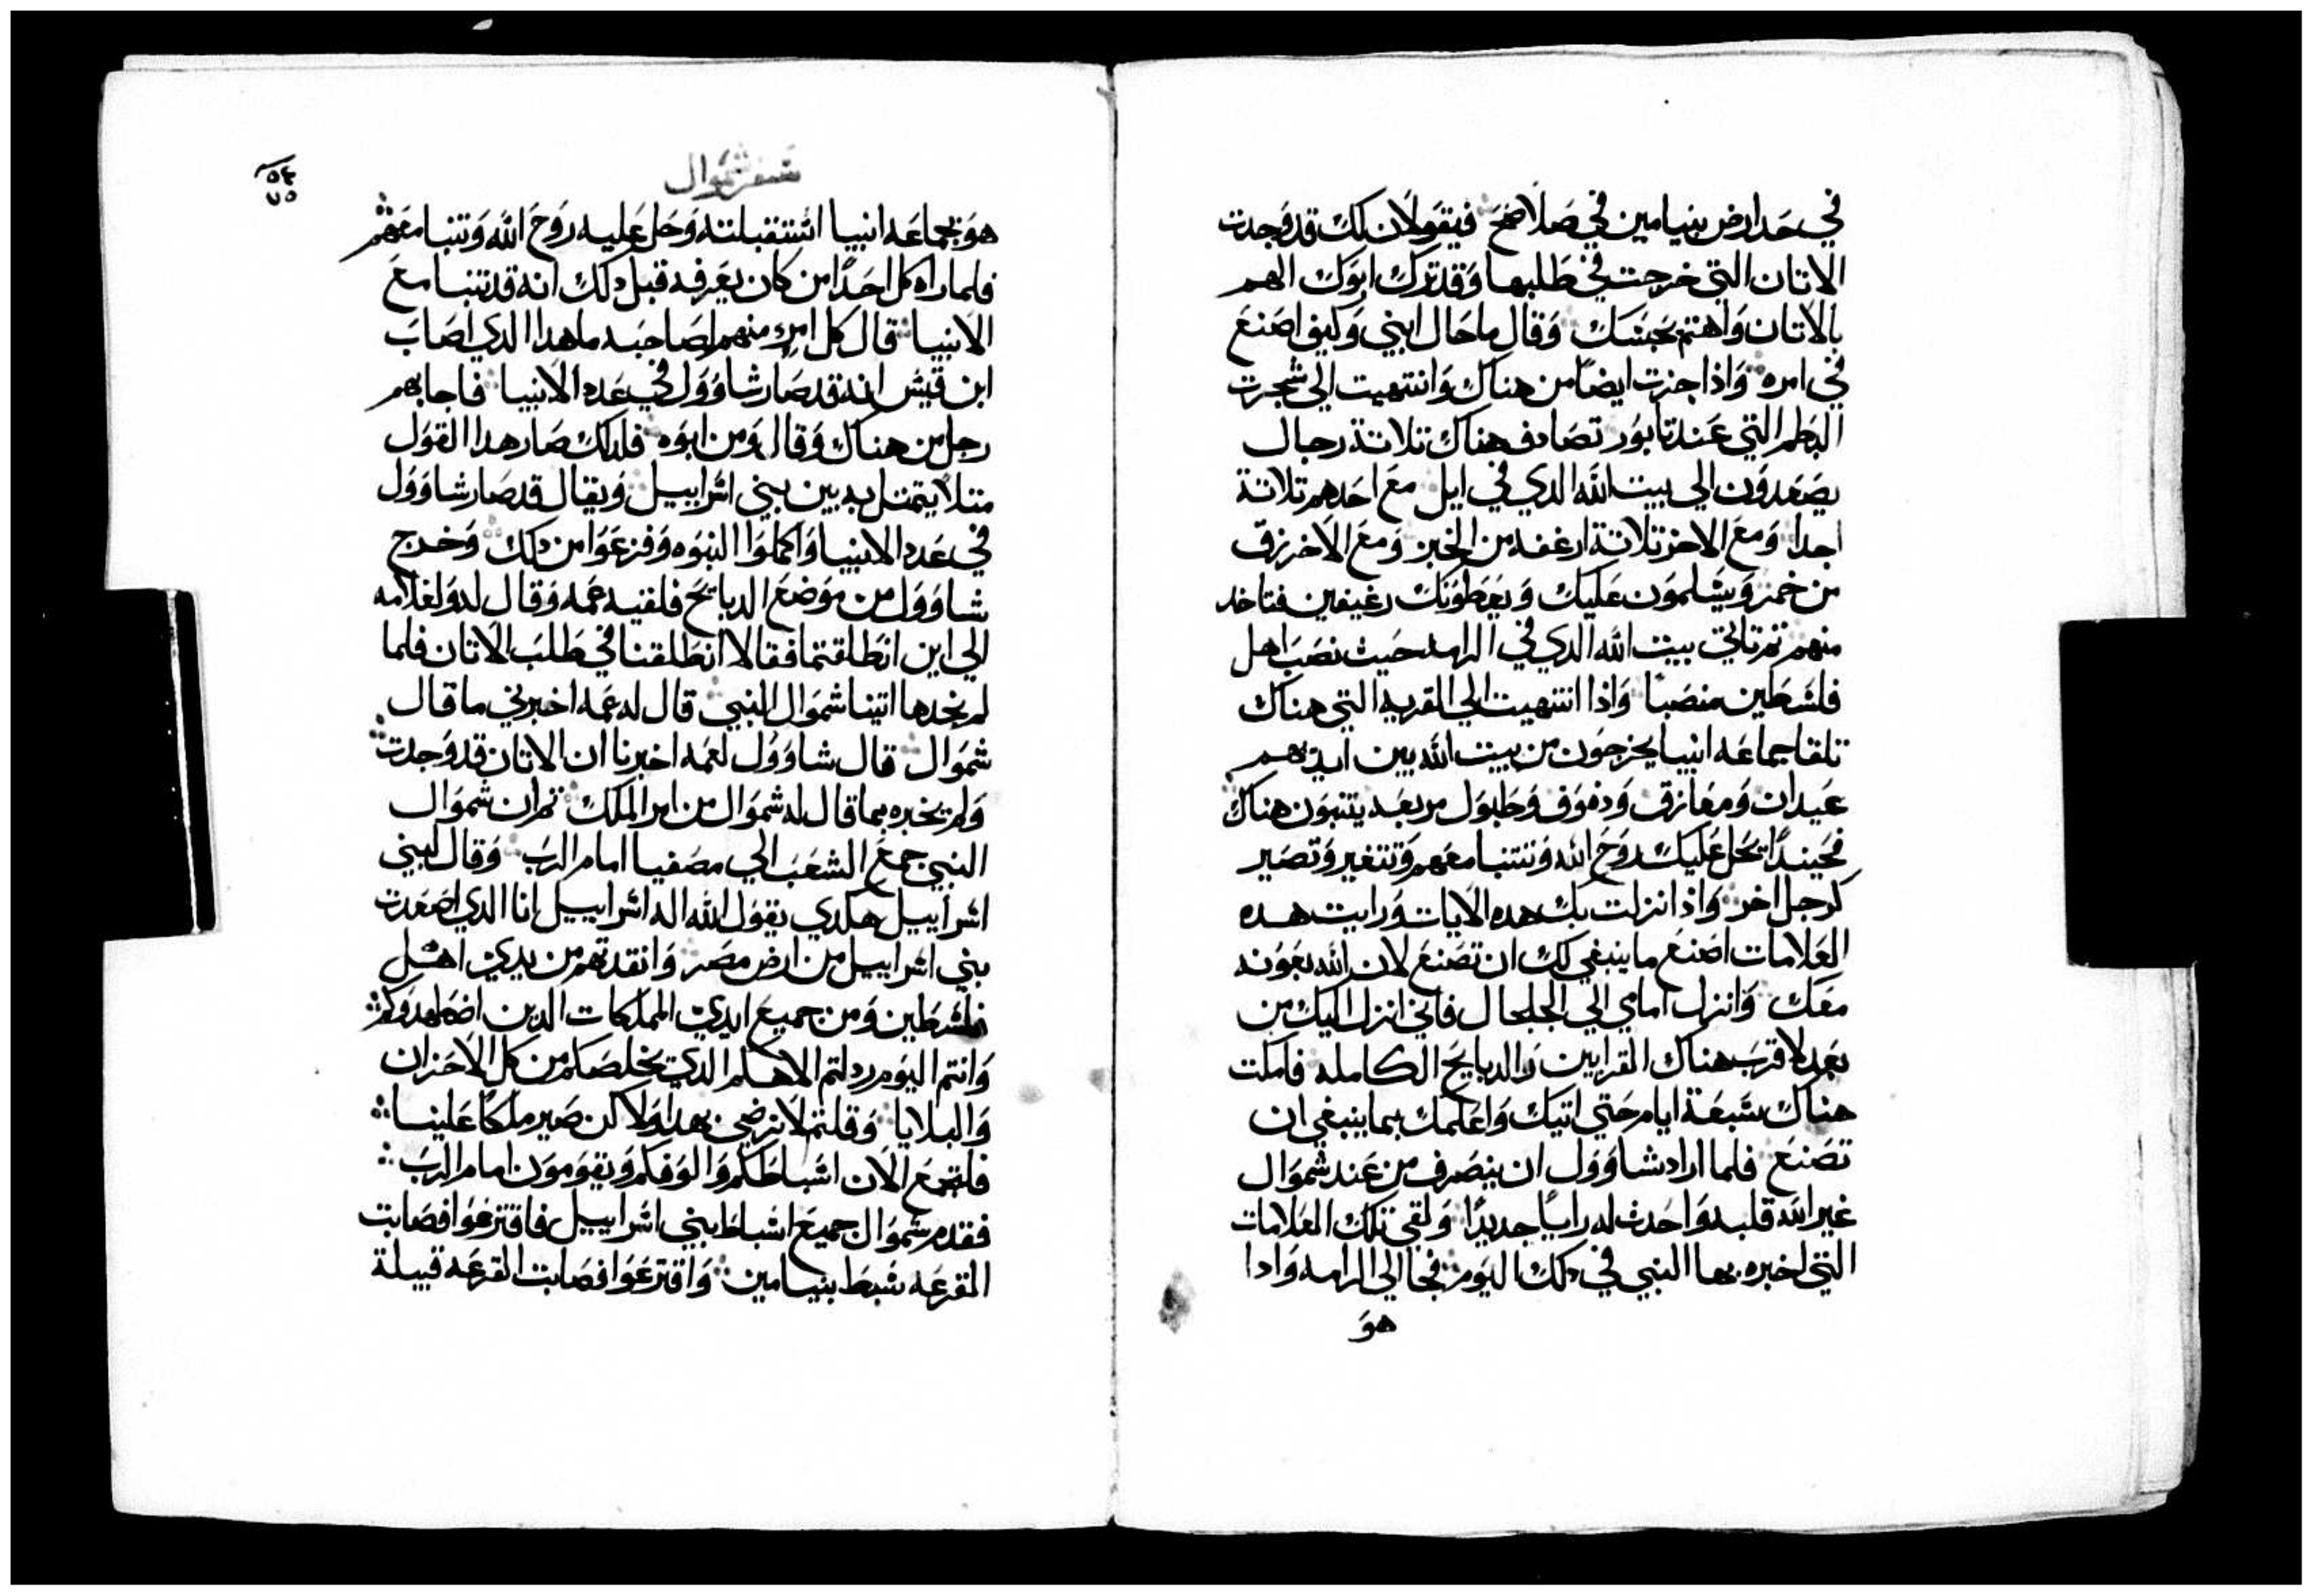 في حد ارض بنيامين في صلاصح فيقولان لك قد وجدت
الاتان التي خرجت في طلبها وقد ترك ابوك الهم
بالاتان واهتم بحبسك وقال ما حال ابني وكيف اصنع
في امره واذا جزت ايضًا من هناك وانتهيت الي شجرت
البطم التي عند تابور تصادف هناك تلاتة رجال
يصعدون الي بيت الله الدي في ايل مع احدهم تلاتة
اجدا ومع الاخر تلاتة ارغفه من الخبز ومع الاخر زق
من خمر ويسلمون عليك ويعطونك رغيفين فتاخد
منهم تم تاتي بيت الله الدي في الرامه حيث نصب اهل
فلسطين منصبًا واذا انتهيت الي القريه التي هناك
تلقا جماعه انبيا يخرجون من بيت الله بين ايديهم
عيدان ومعازف ودفوف وطبول مر بعد يتنبون هناك
فحينيدًا يحل عليك روح الله وتتنبا معهم وتتغير وتصير
كرجل اخر واذا نزلت بك هده الايات ورايت هده
العلامات اصنع ما ينبغي لك ان تصنع لان الله بعونه
معك وانزل امامي الي الجلجال فاني انزل اليك من
بعد لاقرب هناك القرابين والدبايح الكامله فامكت
هناك سبعة ايام حتي اتيك واعلمك بما ينبغي ان
تصنع فلما اراد شاوول ان ينصرف من عند شموال
غير الله قلبه واحدث له رايًا جديدًا ولقي تلك العلامات
التي اخبره بها النبي في دلك اليوم فجا الي الرامه وادا
هو
سفر شموال
٥٤
٧٥
هو بجماعه انبيا استقبلته وحل عليه روح الله وتنبا معهم
فلما راه كل احدًا من كان يعرفه قبل دلك انه قد تنبا مع
الانبيا قال كل امرء منهم لصاحبه ما هدا الدي اصاب
ابن قيس انه قد صار شاوول في عدد الانبيا فاجابهم
رجل من هناك وقال ومن ابوه فلدلك صار هدا القول
متلًا يتمتل به بين بني اسراييل ويقال قد صار شاوول
في عدد الانبيا واكملوا النبوه وفزعوا من دلك وخرج
شاوول من موضع الدبايح فلقيه عمه وقال له ولغلامه
الي اين انطلقتما فقالا انطلقنا في طلب الاتان فلما
لم نجدها اتينا شموال النبي قال له عمه اخبرني ما قال
شموال قال شاوول لعمه اخبرنا ان الاتان قد وجدت
ولم يخبره بما قال له شموال من امر الملك تم ان شموال
النبي جمع الشعب الي مصفيا امام الرب وقال لبني
اسراييل هكدي يقول الله اله اسراييل انا الدي اصعدت
بني اسراييل من ارض مصر وانقدتهم من يدي اهل
فلسطين ومن جميع ايدي المملكات الدين اضطهدوكم
وانتم اليوم رد لتم الاهكم الدي يخلصكم من كل الاحزان
والبلايا وقلتم لا نرضي بهدا ولاكن صير ملكًا علينا
فلتجمع الان اسباطكم والوفكم ويقومون امام الرب
فقدم شموال جميع اسباط بني اسراييل فاقترعوا فصابت
القرعه سبط بنيامين واقترعوا فصابت القرعه قبيلة